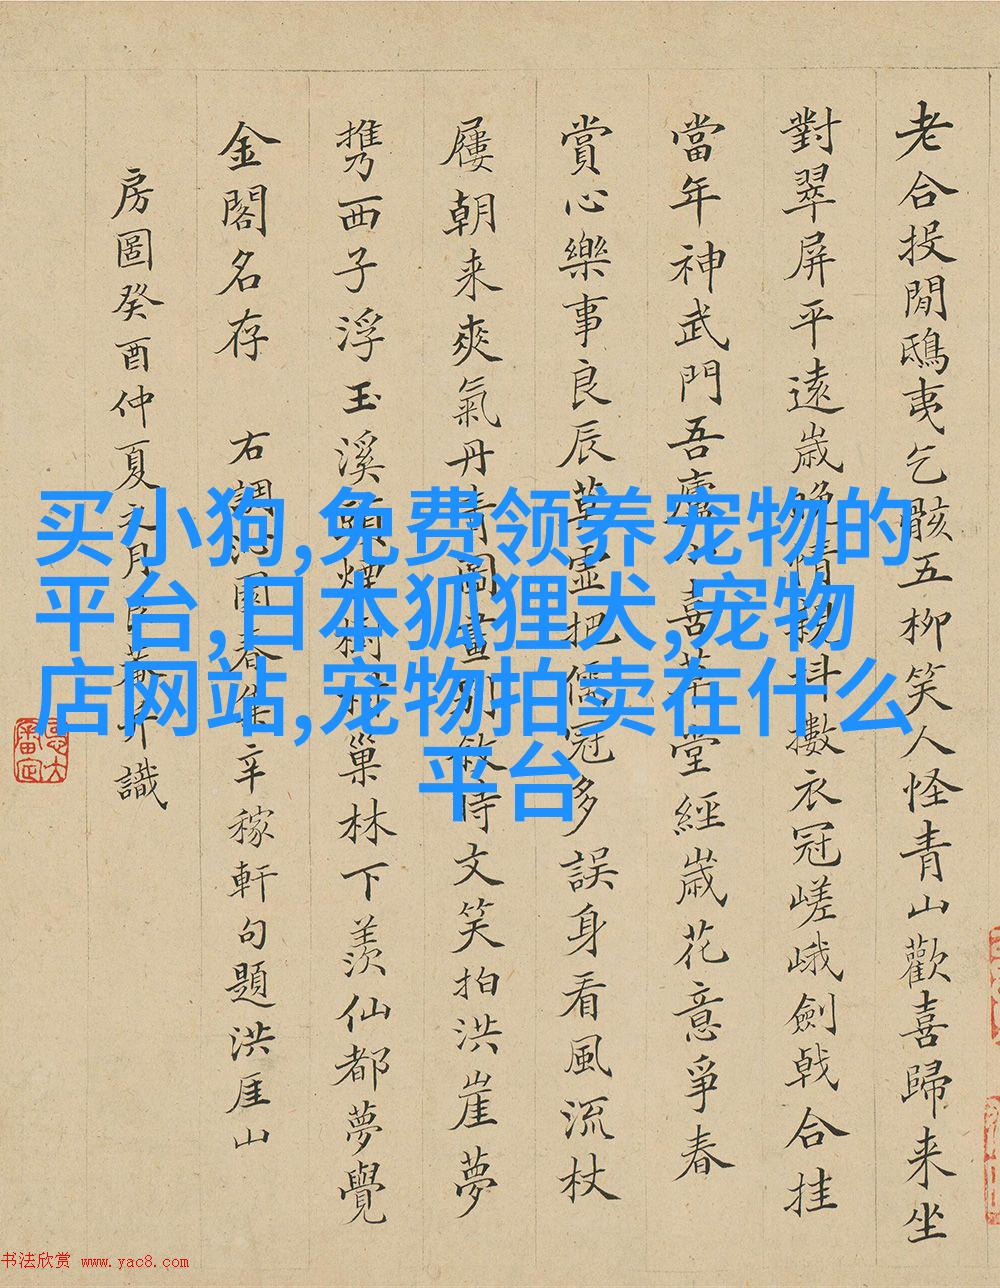 老合投閒鴟夷乞骸五柳笑人怪青山歡喜歸来坐
對翠屏平遠歲晚情親抖擻衣冠嵯峨劍戟合挂
當年神武門吾廬小喜草堂經歲花意爭春
賞心樂事良辰把儒冠多誤身看風流杖
屨朝来爽氣丹青圖畫別敘文笑拍洪崖夢
携西子浮玉溪頭煙樹巢林下羨仙都夢覺
金閣名存 右調沁園春集辛稼軒句題洪厓山
房圖癸酉仲夏月菴并識
买小狗,免费领养宠物的
平台,日本狐狸犬,宠物
店网站,宠物拍卖在什么
平台
书法欣赏 www.yac8.com